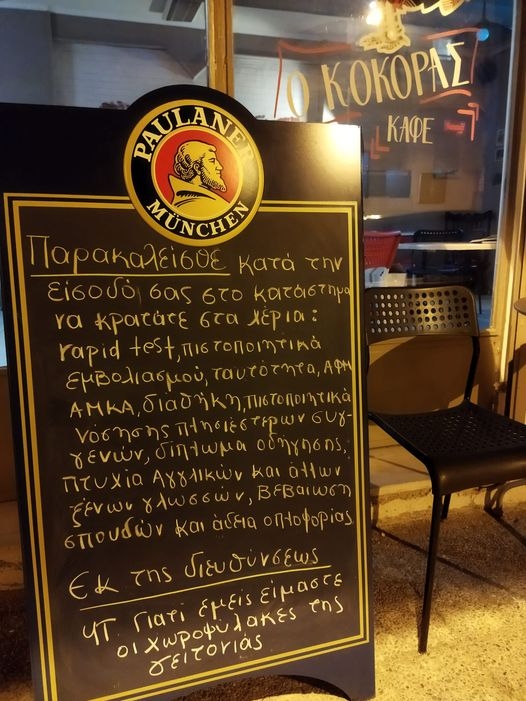 Ο ΚΟΚΟΡΑΣ
ΚΑΦΕ
PAULANER
MÜNCHEN
Παρακαλείσθε κατά την
είσοδό σας στο κατάστημα
να κρατάτε στα χέρια:
rapid test, πιστοποιητικά
εμβολιασμού, ταυτότητα, ΑΦΜ
ΑΜΚΑ, διαθήκη, πιστοποιητικά
νόσησης πλησιέστερων συγ-
γενών, δίπλωμα οδήγησης,
πτυχία Αγγλικών και άλλων
ξένων γλωσσών, βεβαίωση
σπουδών και άδεια οπλοφορίας
Εκ της διευθύνσεως
ΥΓ. Γιατί εμείς είμαστε
οι χωροφύλακες της
γειτονιάς